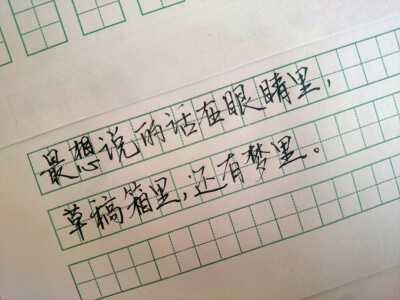 最想说的话在眼睛里,
草稿箱里,还有梦里。